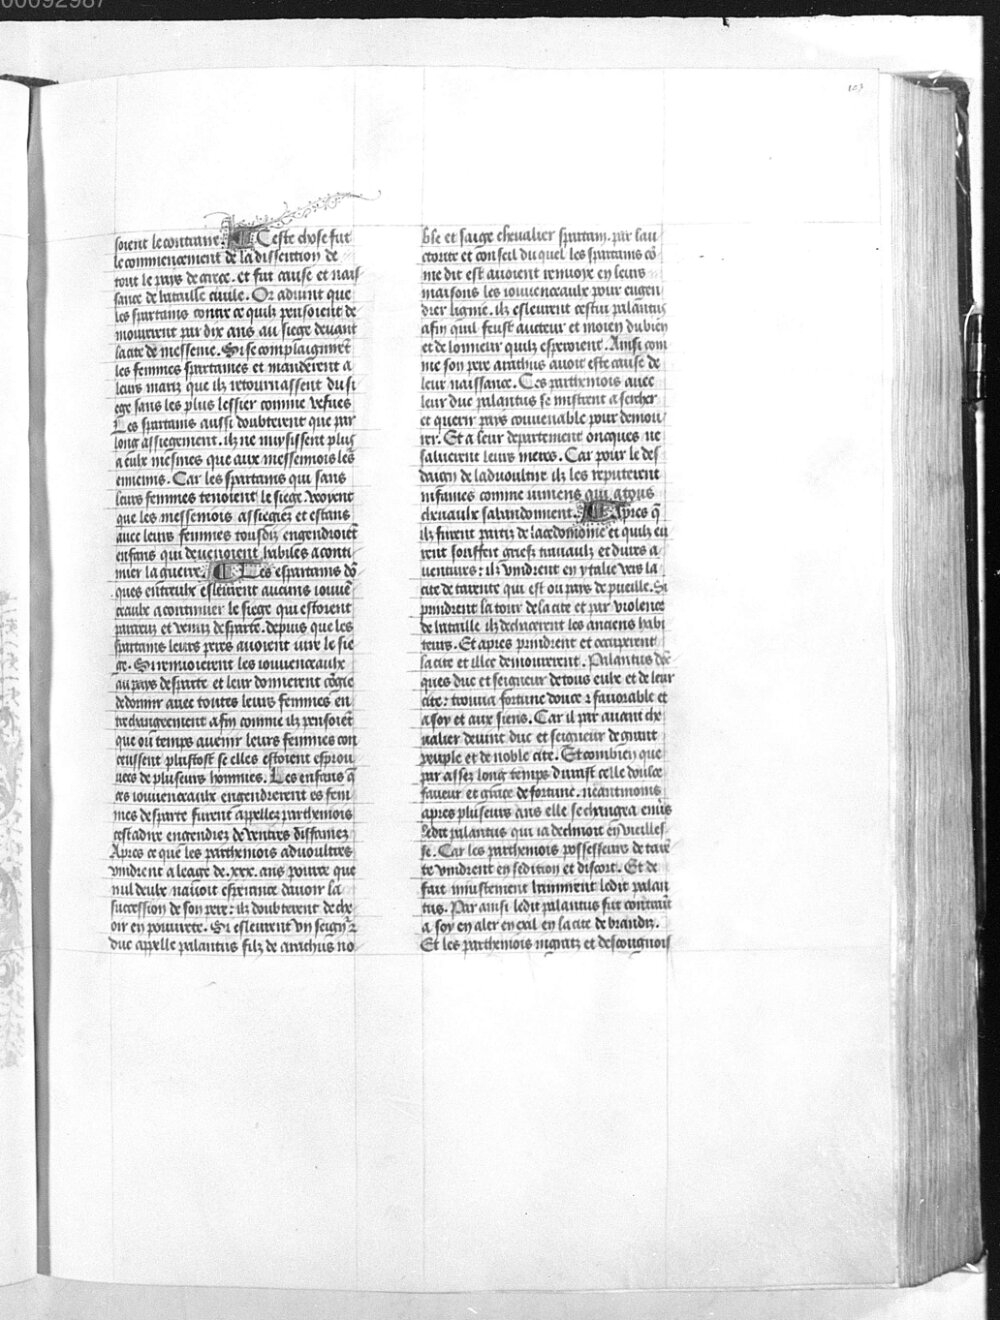 00092987
103
soient le contraire. Ceste chose fut
le commencement de la dissention de
tout le pays de grece. et fut cause et nais
sance de bataille ciuile. Or aduint que
les spartains contre ce quilz pensoient de
mourerent par dix ans au siege deuant
la cite de messene. Si se complaignirēt
les femmes spartaines et manderent a
leurs mariz que ilz retournassent du si
ege sans les plus lessier comme vefues
Les spartains aussi doubterent que par
long assiegement. ilz ne nuysissent plus
a eulx mesmes que aux messenois leˢ
ennemis. Car les spartains qui sans
leurs femmes tenoient le siege. veoyent
que les messenois assiegiez et estans
auec leurs femmes tousdiz engendroiēt
enfans qui deuenoient habiles a conti
nuer la guerre. Les espartains dō
ques entreulx esleurent aucuns iouuē
ceaulx a continuer le siege qui estoient
partiz et venuz desparte. depuis que les
spartains leurs peres auoient iure le sie
ge. Si renuoierent les iouuenceaulx
au pays desparte et leur donnerent cōgie
de dormir auec toutes leurs femmes en
trechangeement afin comme ilz pensoiēt
que ou temps auenir leurs femmes con
ceussent plustost se elles estoient esprou
uees de pluseurs hommes. Les enfans q̄
ces iouuenceaulx engendrerent es fem
mes desparte furent appellez parthemois
cestadire engendrez de ventres diffamez
Apres ce que les parthemois aduoultres
vindrent a leage de .xxx. ans pource que
nul deulx nauoit esperance dauoir la
succession de son pere: ilz doubterent de che
oir en pourete. Si esleurent vn seignʳ ⁊
duc appelle palantus filz de arathus no
ble et saige cheualier spartain. par lau
ctorite et conseil du quel les spartains cō
me dit est auoient renuoie en leurs
maisons les iouuenceaulx pour engen
drer lignie. ilz esleurent cestui palantus
afin quil feust aucteur et moien du bien
et de lonneur quilz esperoient. Ainsi com
me son pere arathus auoit este cause de
leur naissance. Ces parthemois auec
leur duc palantus se mistrent a sercher
et querir pays conuenable pour demou
rer. Et a leur departement oncques ne
saluerent leurs meres. Car pour le des
daign de laduoultire ilz les reputerent
infames comme iumens qui a tous
cheuaulx sabandonnent. Apres q̄
ilz furent partiz de lacedomome et quilz eu
rent souffert griefz trauaulz et dures a
uentures: ilz vindrent en ytalie vers la
cite de tarente qui est ou pays de pueille. Si
prindrent la tour de la cite et par violence
de bataille ilz dechacerent les anciens habi
teurs. Et apres prindrent et occuperent
la cite et illec demourerent. Palantus dōc
ques duc et seigneur de tous eulx et de leur
cite: trouua fortune douce ⁊ fauorable et
a soy et aux siens. Car il par auant che
ualier deuint duc et seigneur de grant
peuple et de noble cite. Et combien que
par assez long temps durast celle doulce
faueur et grace de fortune. neantmoins
apres pluseurs ans elle se changea enuers
ledit palantus qui ia declinoit en vieilles
se. Car les parthemois possesseurs de tarē
te vindrent en sedition et discort. Et de
fait iniustement bannirent ledit palan
tus. Par ainsi ledit palantus fut contraīt
a soy en aler en exil en la cite de brandiz.
Et les parthemois ingratz et descongnois